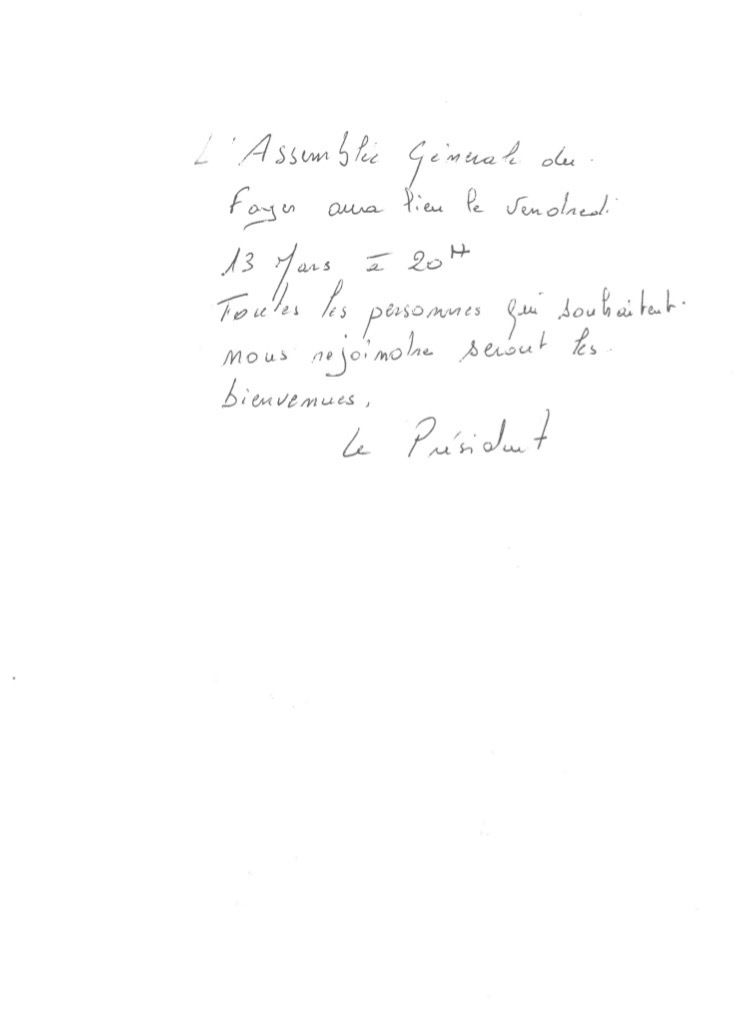 L'Assemblée Générale du
Foyer aura lieu le Vendredi
13 Mars à 20H
Toutes les personnes qui souhaitent
nous rejoindre seront les
bienvenues.
Le Président